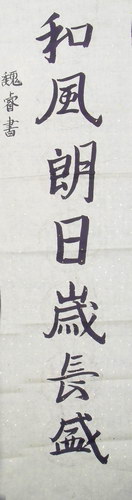 和風朗日歲長盛
魏睿書